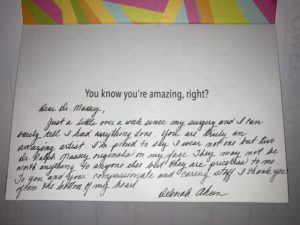 You know you're amazing, right?
Dear Dr. Massey,
Just a little over a week since my surgery and I can
barely tell I had anything done. You are truly an
amazing artist. I'm proud to say I wear not one but two
Dr. Ralph Massey originals on my face. They may not be
worth anything to anyone else but they are priceless to me
To you and your compassionate and caring staff I thank you
from the bottom of my heart
Deborah